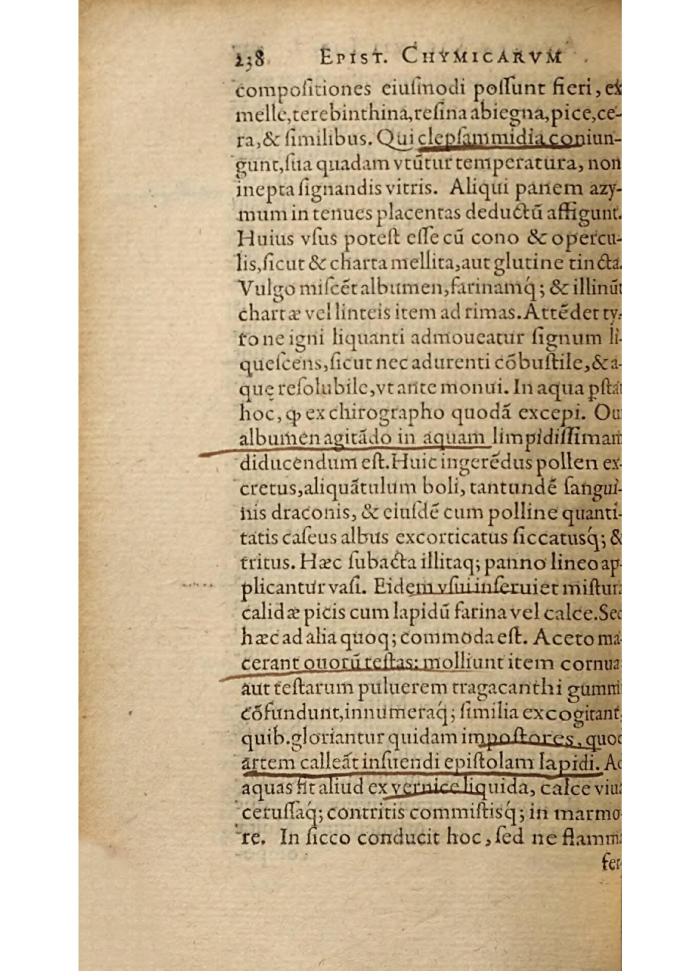 238 EPIST. CHYMICARVM
compoſitiones eiuſmodi poſſunt fieri, ex
melle, terebinthina, reſina abiegna, pice, ce-
ra, & ſimilibus. Qui clepſammidia coniun-
gunt, ſua quadam vtūtur temperatura, non
inepta ſignandis vitris. Aliqui panem azy-
mum in tenues placentas deductū affigunt.
Huius vſus poteſt eſſe cū cono & opercu-
lis, ſicut & charta mellita, aut glutine tincta.
Vulgo miſcēt albumen, farinamq́; & illinūt
chartæ vel linteis item ad rimas. Attēdet ty-
ro ne igni liquanti admoueatur ſignum li-
queſcens, ſicut nec adurenti cōbuſtile, & a-
quę reſolubile, vt ante monui. In aqua pſtat
hoc, ꝙ ex chirographo quodā excepi. Oui
albumen agitādo in aquam limpidiſſimam
diducendum eſt. Huic ingerēdus pollen ex-
cretus, aliquātulum boli, tantundē ſangui-
nis draconis, & eiuſdē cum polline quanti-
tatis caſeus albus excorticatus ſiccatusq́; &
tritus. Hæc ſubacta illitaq; panno lineo ap-
plicantur vaſi. Eidem vſui inſeruiet miſtura
calidæ picis cum lapidū farina vel calce. Sed
hæc ad alia quoq; commoda eſt. Aceto ma-
cerant ouorū teſtas: molliunt item cornua:
aut teſtarum puluerem tragacanthi gummi
cōfundunt, innumeraq́; ſimilia excogitant,
quib. gloriantur quidam impoſtores, quod
artem calleāt inſuendi epiſtolam lapidi. Ad
aquas fit aliud ex vernice liquida, calce viua
ceruſſaq́; contritis commiſtisq́; in marmo-
re. In ſicco conducit hoc, ſed ne flamma
fer-